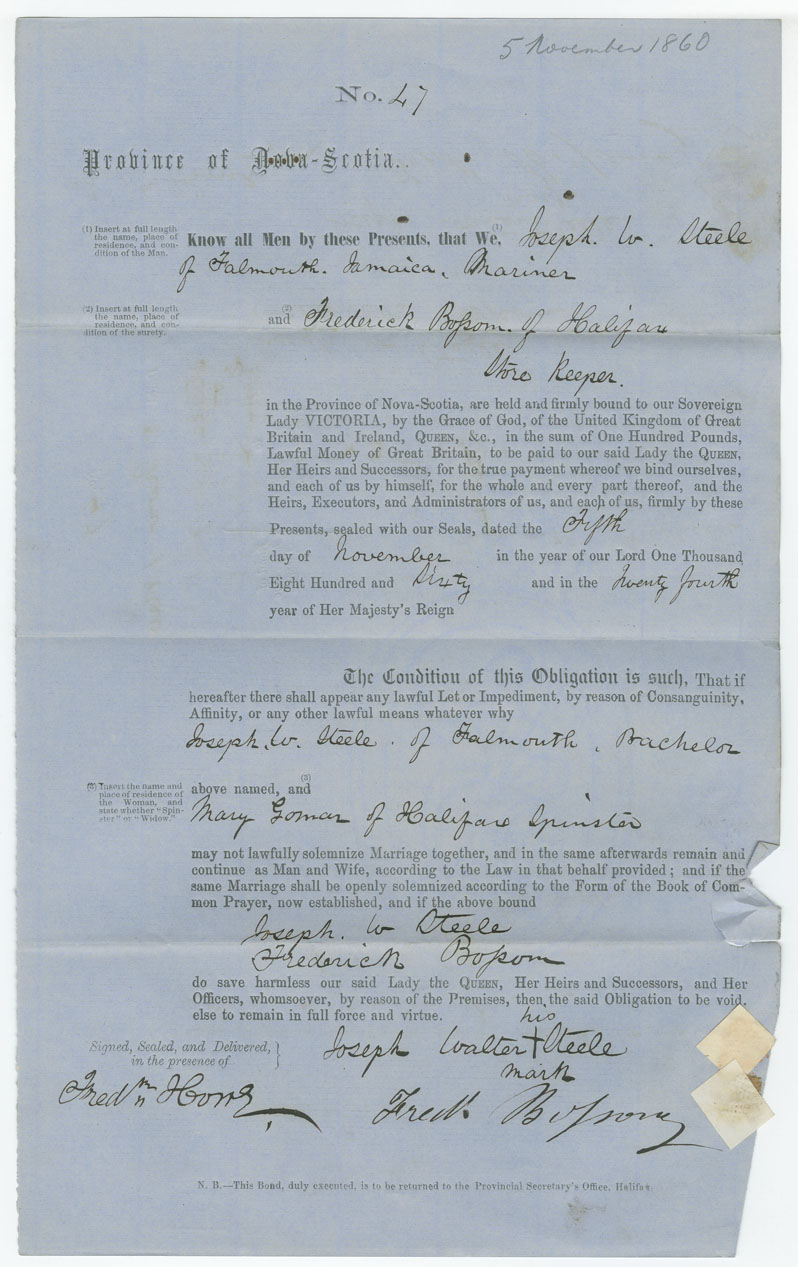 5 November 1860
No. 47
Province of Nova-Scotia.
(1) Insert at full length
the name, place of
residence, and con-
dition of the Man.
Know all Men by these Presents, that We, (1) Joseph. W. Steele
of Falmouth. Jamaica, Mariner
(2) Insert at full length
the name, place of
residence, and con-
dition of the surety.
and (2) Frederick Boſsom. of Halifax
Store Keeper.
in the Province of Nova-Scotia, are held and firmly bound to our Sovereign
Lady VICTORIA, by the Grace of God, of the United Kingdom of Great
Britain and Ireland, QUEEN, &c., in the sum of One Hundred Pounds,
Lawful Money of Great Britain, to be paid to our said Lady the QUEEN,
Her Heirs and Successors, for the true payment whereof we bind ourselves,
and each of us by himself, for the whole and every part thereof, and the
Heirs, Executors, and Administrators of us, and each of us, firmly by these
Presents, sealed with our Seals, dated the Fifth
day of November in the year of our Lord One Thousand
Eight Hundred and Sixty and in the Twenty fourth
year of Her Majesty's Reign
The Condition of this Obligation is such, That if
hereafter there shall appear any lawful Let or Impediment, by reason of Consanguinity,
Affinity, or any other lawful means whatever why
Joseph. W. Steele. of Falmouth, Bachelor
(3) Insert the name and
place of residence of
the Woman, and
state whether "Spin-
ster" or "Widow."
above named, and (3)
Mary Gomar of Halifax Spinster
may not lawfully solemnize Marriage together, and in the same afterwards remain and
continue as Man and Wife, according to the Law in that behalf provided; and if the
same Marriage shall be openly solemnized according to the Form of the Book of Com-
mon Prayer, now established, and if the above bound
Joseph. W Steele
Frederick Boſsom
do save harmless our said Lady the QUEEN, Her Heirs and Successors, and Her
Officers, whomsoever, by reason of the Premises, then, the said Obligation to be void,
else to remain in full force and virtue.
his
Signed, Sealed, and Delivered,
in the presence of
Joseph Walter + Steele
mark
Fredk Boſsom
N. B.—This Bond, duly executed, is to be returned to the Provincial Secretary's Office, Halifax.